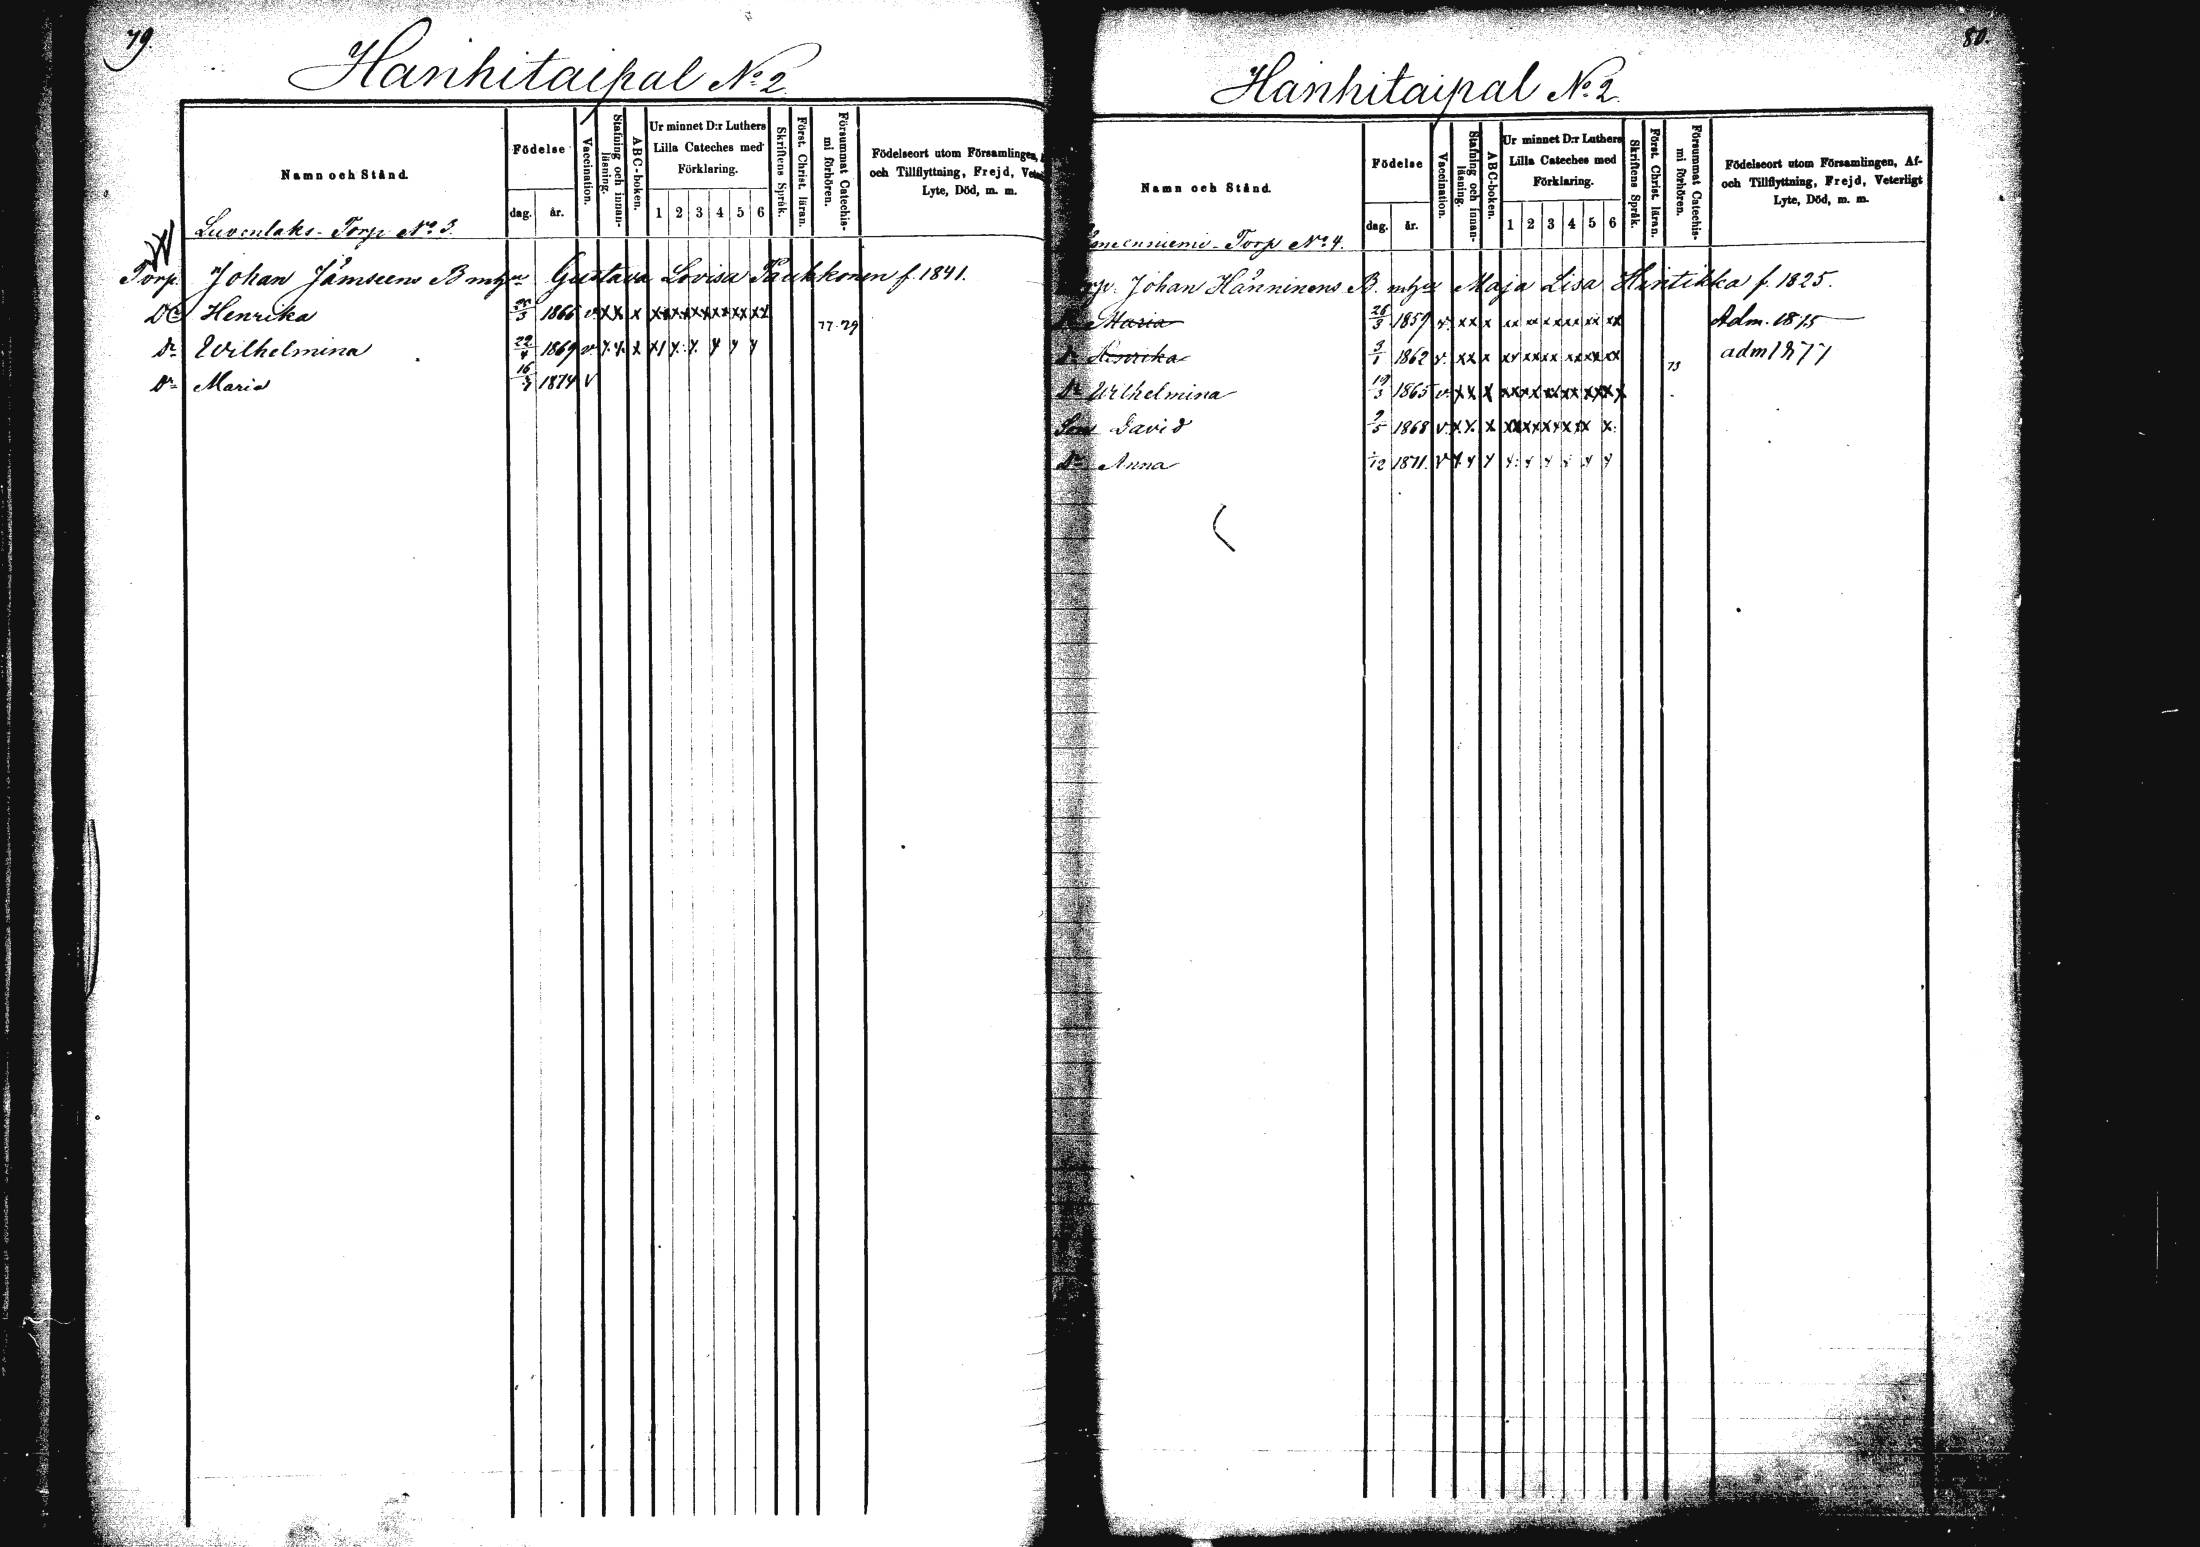 79.
Hanhitaipal No. 2.
Namn och Stånd.
Födelse
dag. år.
Vaccination.
Stafning och innan-
läsning.
ABC-boken.
Ur minnet D:r Luthers
Lilla Cateches med
Förklaring.
1 2 3 4 5 6
Skriftens Språk.
Först. Christ. läran.
Försummat Catechis-
mi förhören.
Födelseort utom Församlingen,
och Tillflyttning, Frejd,
Lyte, Död, m. m.
Torp No. 3.
Torp. Johan Jämseens B. Gustava Lovisa f. 1841.
Henrika 1866 v x x x
77. 79
Dr Wilhelmina 22/4 1869 v
Dr Maria 1874 v
80.
Hanhitaipal No. 2.
Namn och Stånd.
Födelse
dag. år.
Vaccination.
Stafning och innan-
läsning.
ABC-boken.
Ur minnet D:r Luthers
Lilla Cateches med
Förklaring.
1 2 3 4 5 6
Skriftens Språk.
Först. Christ. läran.
Försummat Catechis-
mi förhören.
Födelseort utom Församlingen, Af-
och Tillflyttning, Frejd, Veterligt
Lyte, Död, m. m.
Torp No. 4.
Johan Hänninens B. Maja Lisa Hintikka f. 1825.
Maria 26/3 1859 v. xx x xx xx xx xx xx xx Adm. 1875
Dr Henrika 3/1 1862 v. xx x adm 1877
73
Dr Wilhelmina 19/3 1865 v. x x x
Son David 1868 v. x x x
Dr Anna 1871. v